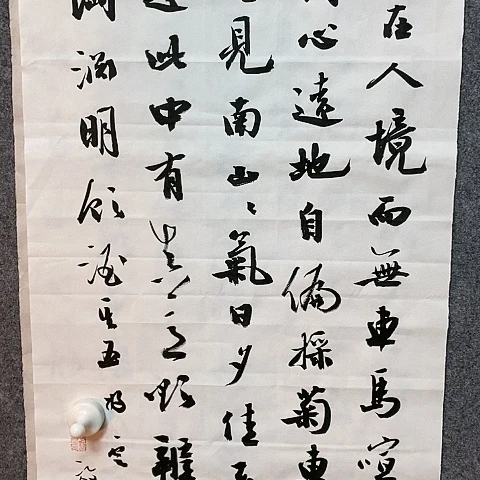 在人境而無車馬喧
心遠地自偏採菊東
見南山山氣日夕佳
此中有真意欲辨
淵明飲酒其五